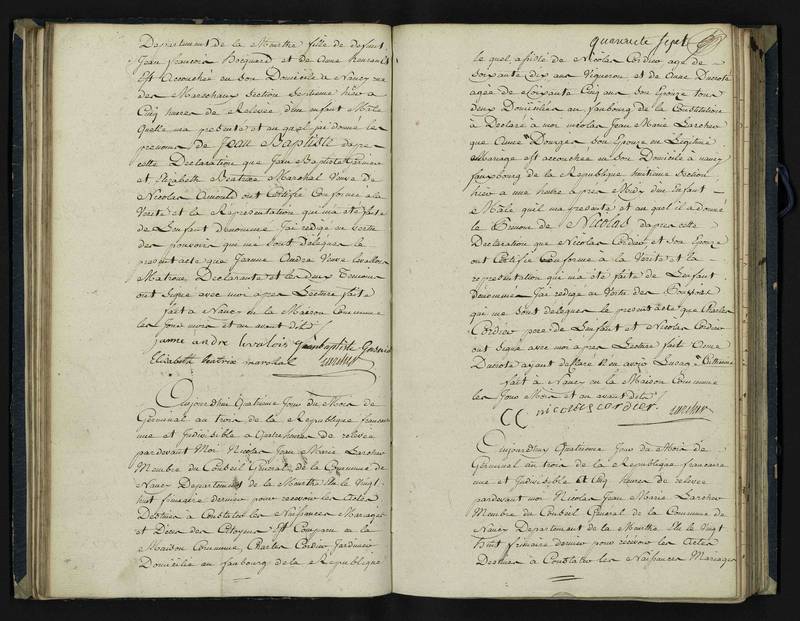 Departement de la Meurthe fille de defunt
Jean francois Bocquard et de Anne Renrard
Est accouchée en son Domicile à Nancy rue
des Marechaux Section Septieme hier a
Cinq heures de Relevée d'un enfant Male
quelle ma presenté et au quel jai donné les
prenoms de Jean Baptiste dapre
cette Declaration que Jean Baptiste
et Elizabeth Beatrix Marchal Veuve de
Nicolas Arnould ont Certifié Conforme a la
Verité et la Representation qui ma été faite
de Lenfant denommé Jai redigé en vertu
des pouvoirs qui me sont Délégués le
present acte que Jeanne Andre Veuve Levallois
Matrone Declarante et les deux Temoins
ont signé avec moi apres Lecture faite
fait a Nancy en la Maison Commune
les Jour mois et an avant dits
janne andre levalois jean baptiste
Elizabeth beatrix marchal Larcher
Aujourdhui Quatrieme Jour du Mois de
Germinal an trois de la Republique francoise
une et Indivisible a quatre heures de relevée
pardevant Moi Nicolas Jean Marie Larcher
Membre du Conseil General de la Commune de
Nancy Departement de la Meurthe Elu le Vingt
huit frimaire dernier pour recevoir les Actes
Destinés a Constater les Naissances Mariages
et Décès des Citoyens Est Comparu en la
Maison Commune, Charles Cordier Jardinier
Domicilié au faubourg de la Republique
quarante sept
le quel assisté de Nicolas Cordier agé de
soixante dix ans Vigneron et de Anne Ducrote
agée de Soixante Cinq ans son Epouze tous
deux Domiciliés au faubourg de la Constitution
à Declaré à moi nicolas Jean Marie Larcher
que Anne Dourges son Epouze en Légitime
Mariage est accouchée en son Domicile à nancy
faubourg de la Republique huitieme Section
hier a une heure apres Midi d'un Enfant
Male quil ma presenté et au quel il a donné
le Prenom de Nicolas dapres cette
Declaration que Nicolas Cordier et son Epouze
ont Certifié Conforme à la Verité et la
representation qui ma été faite de Lenfant
denommé Jai redigé en Vertu des Pouvoirs
qui me sont delegues le present acte que Charles
Cordier pere de Lenfant et Nicolas Cordier
ont signé avec moi apres Lecture fait Anne
Ducrote ayant declaré n'en avoir Lusage
fait a Nancy en la Maison Commune
les Jour Mois et an avant dits
CC nicolas cordier Larcher
Aujourdhuy Quatrieme Jour du Mois de
Germinal an trois de la Republique francaise
une et Indivisible a Cinq heures de relevée
pardevant moi Nicolas Jean Marie Larcher
Membre du Conseil General de la Commune de
Nancy Departement de la Meurthe Elu le Vingt
huit frimaire dernier pour recevoir les Actes
Destinés à Constater les Naissances Mariages